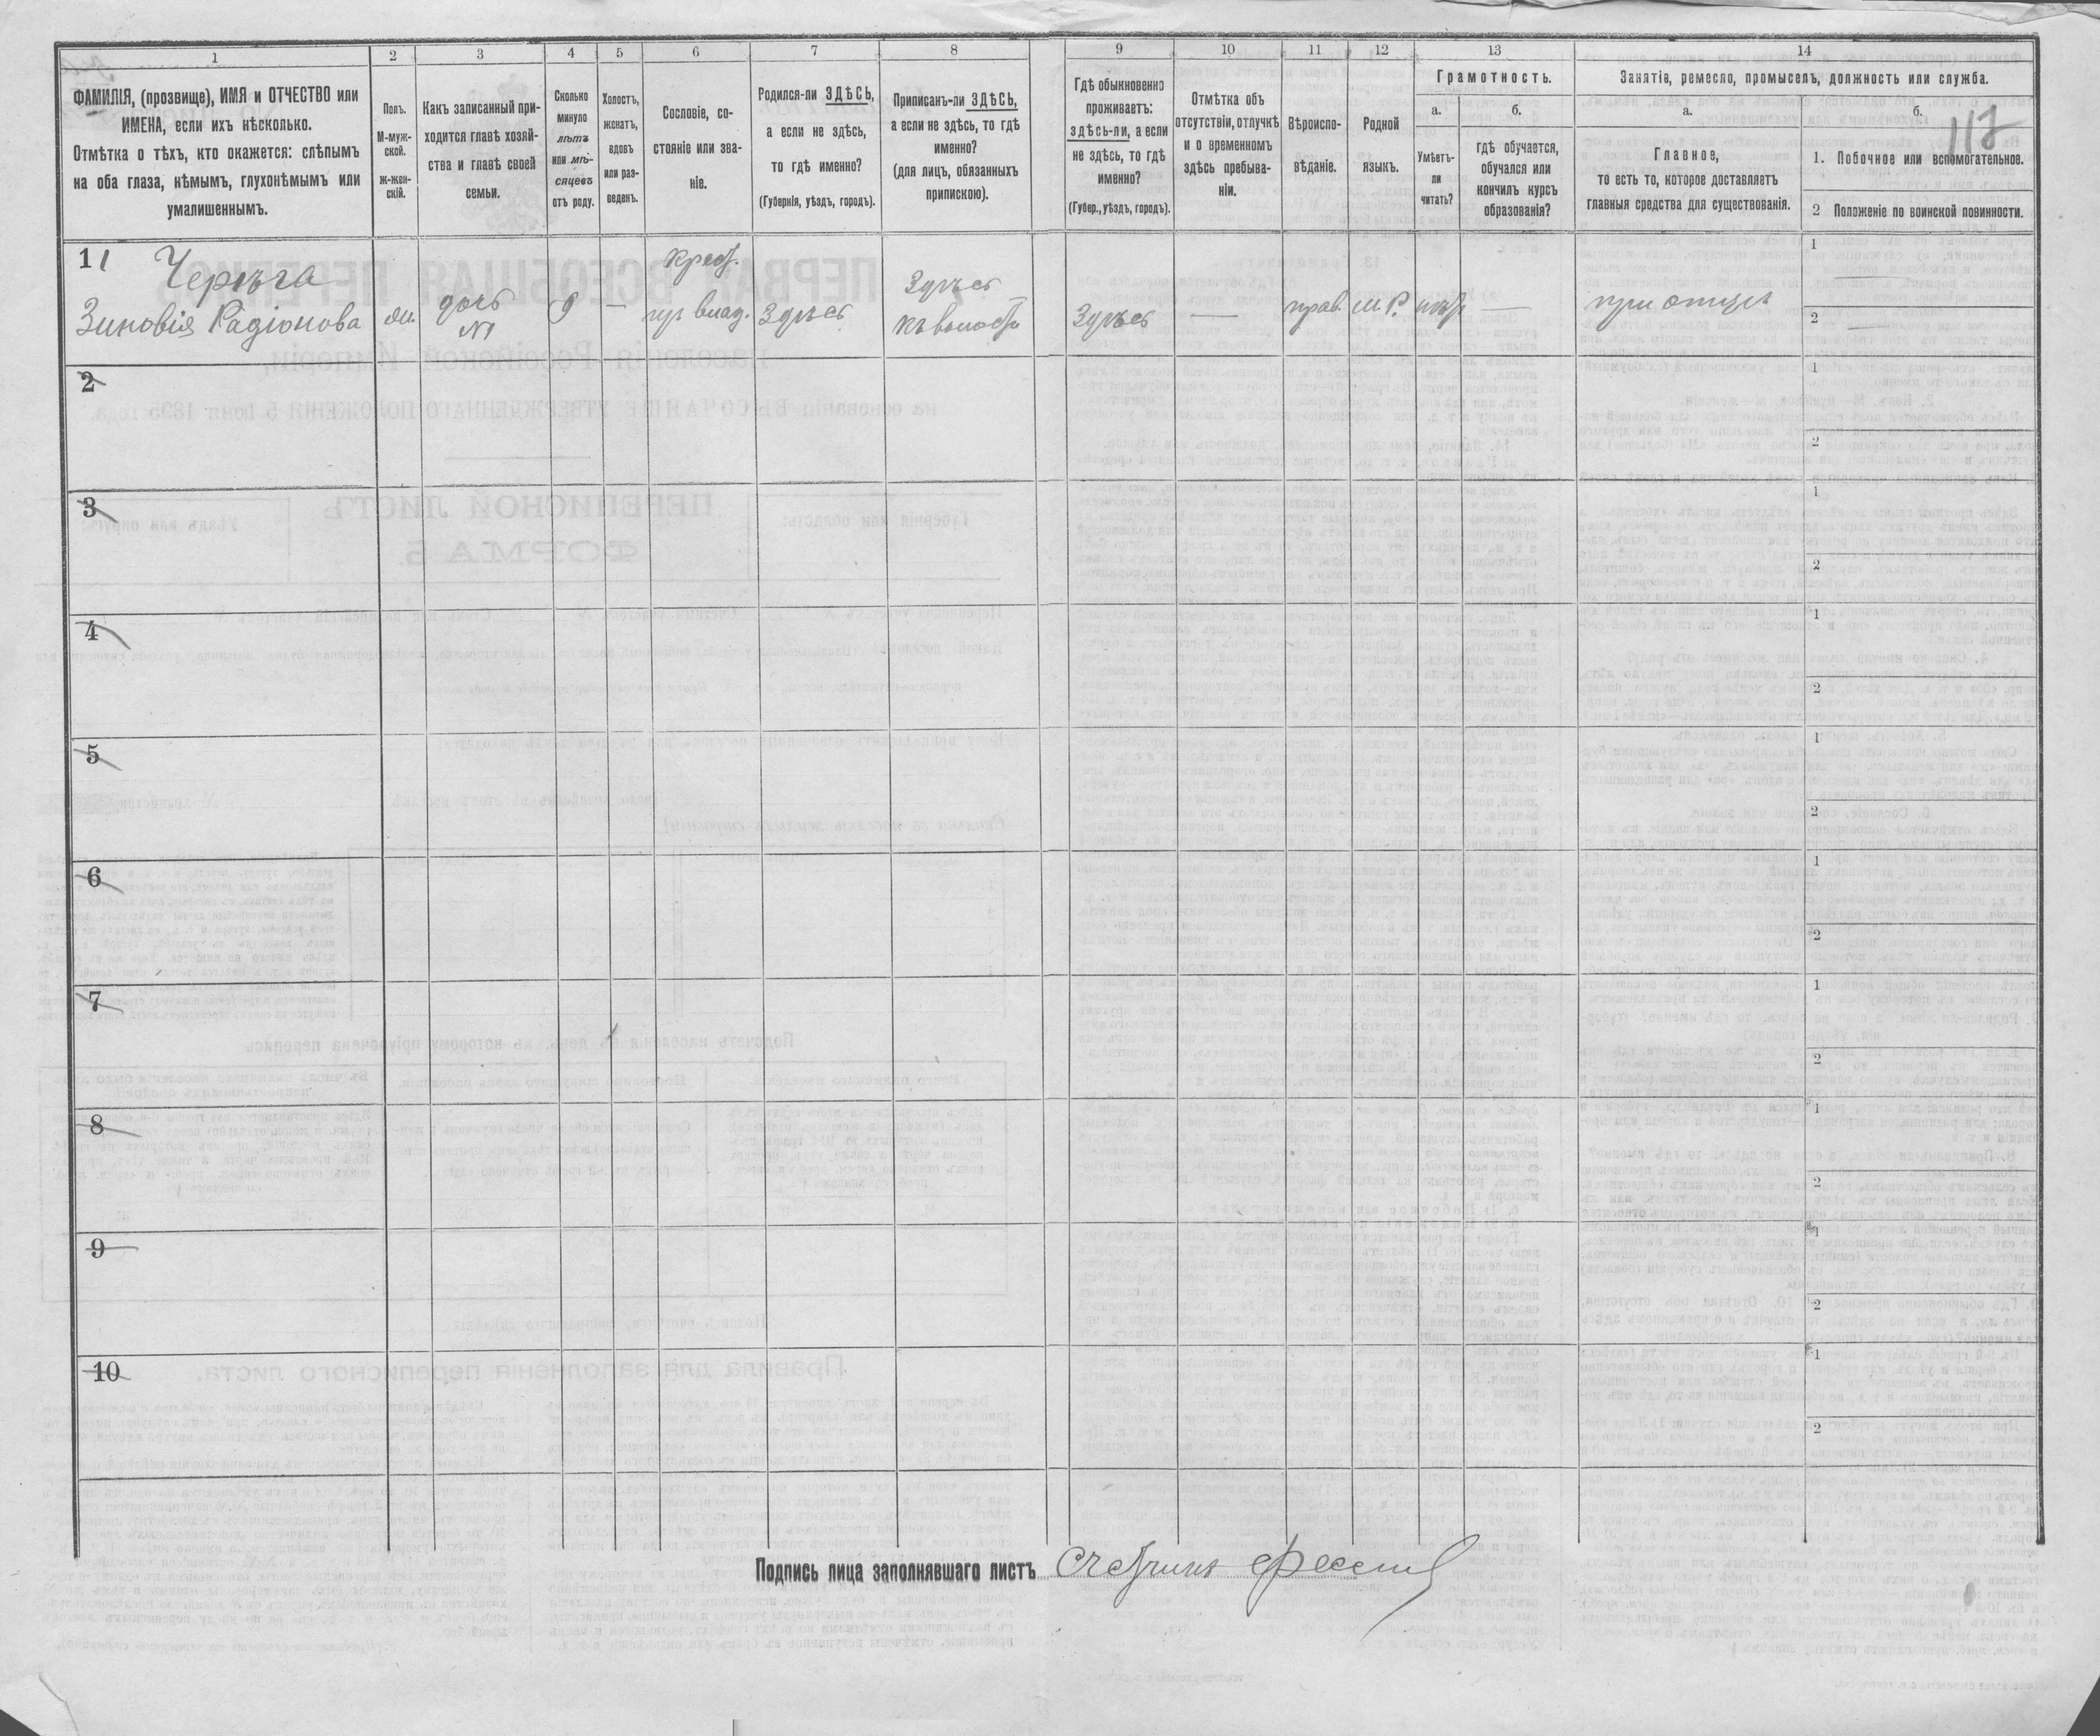 1 2 3 4 5 6 7 8 9 10 11 12 13 14
ФАМИЛІЯ, (прозвище), ИМЯ и ОТЧЕСТВО или
ИМЕНА, если ихъ нѣсколько.
Отмѣтка о тѣхъ, кто окажется: слѣпымъ
на оба глаза, нѣмымъ, глухонѣмымъ или
умалишеннымъ.
Полъ.
М-муж-
ской.
ж-жен-
скій.
Какъ записанный при-
ходится главѣ хозяй-
ства и главѣ своей
семьи.
Сколько
минуло
лѣтъ
или мѣ-
сяцевъ
отъ роду.
Холостъ,
женатъ,
вдовъ
или раз-
веденъ.
Сословіе, со-
стояніе или зва-
ніе.
Родился-ли ЗДѢСЬ,
а если не здѣсь,
то гдѣ именно?
(Губернія, уѣздъ, городъ).
Приписанъ-ли ЗДѢСЬ,
а если не здѣсь, то гдѣ
именно?
(для лицъ, обязанныхъ
припискою).
Гдѣ обыкновенно
проживаетъ:
здѣсь-ли, а если
не здѣсь, то гдѣ
именно?
(Губер., уѣздъ, городъ).
Отмѣтка объ
отсутствіи, отлучкѣ
и о временномъ
здѣсь пребыва-
ніи.
Вѣроиспо-
вѣданіе.
Родной
языкъ.
Грамотность.
а.
Умѣетъ-
ли
читать?
б.
гдѣ обучается,
обучался или
кончилъ курсъ
образованія?
Занятіе, ремесло, промыселъ, должность или служба.
а.
Главное,
то есть то, которое доставляетъ
главныя средства для существованія.
б.
117
1. Побочное или вспомогательное.
2 Положеніе по воинской повинности.
11 Черѣга
Зиновія Радіонова
дочь
№1
9
—
Крест.
Здѣсь
Здѣсь
Здѣсь
—
прав.
м. Р.
—
при отцѣ
1 —
2 —
2
1
2
3
1
2
4
1
2
5
1
2
6
1
2
7
1
2
8
1
2
9
1
2
10
1
2
Подпись лица заполнявшаго листъ Счетчикъ